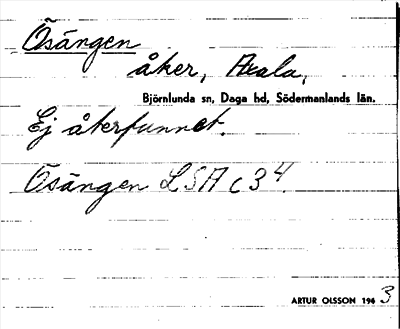 Ösängen
åker, Axala,
Björnlunda sn, Daga hd, Södermanlands län.
Ej återfunnet.
Ösängen LSA C 34.
ARTUR OLSSON 1963